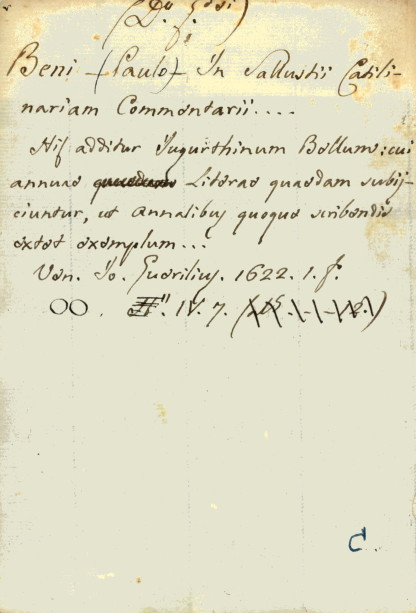 Beni (Paulo) In Sallustii Catili-
nariam Commentarii....
His additur Iugurthinum Bellum: cui
annuae Literae quaedam subij-
ciuntur, ut Annalibus quoque scribendis
extet exemplum...
Ven. Io. Guerilius. 1622. 1. f.
OO. IV. 7.
C.